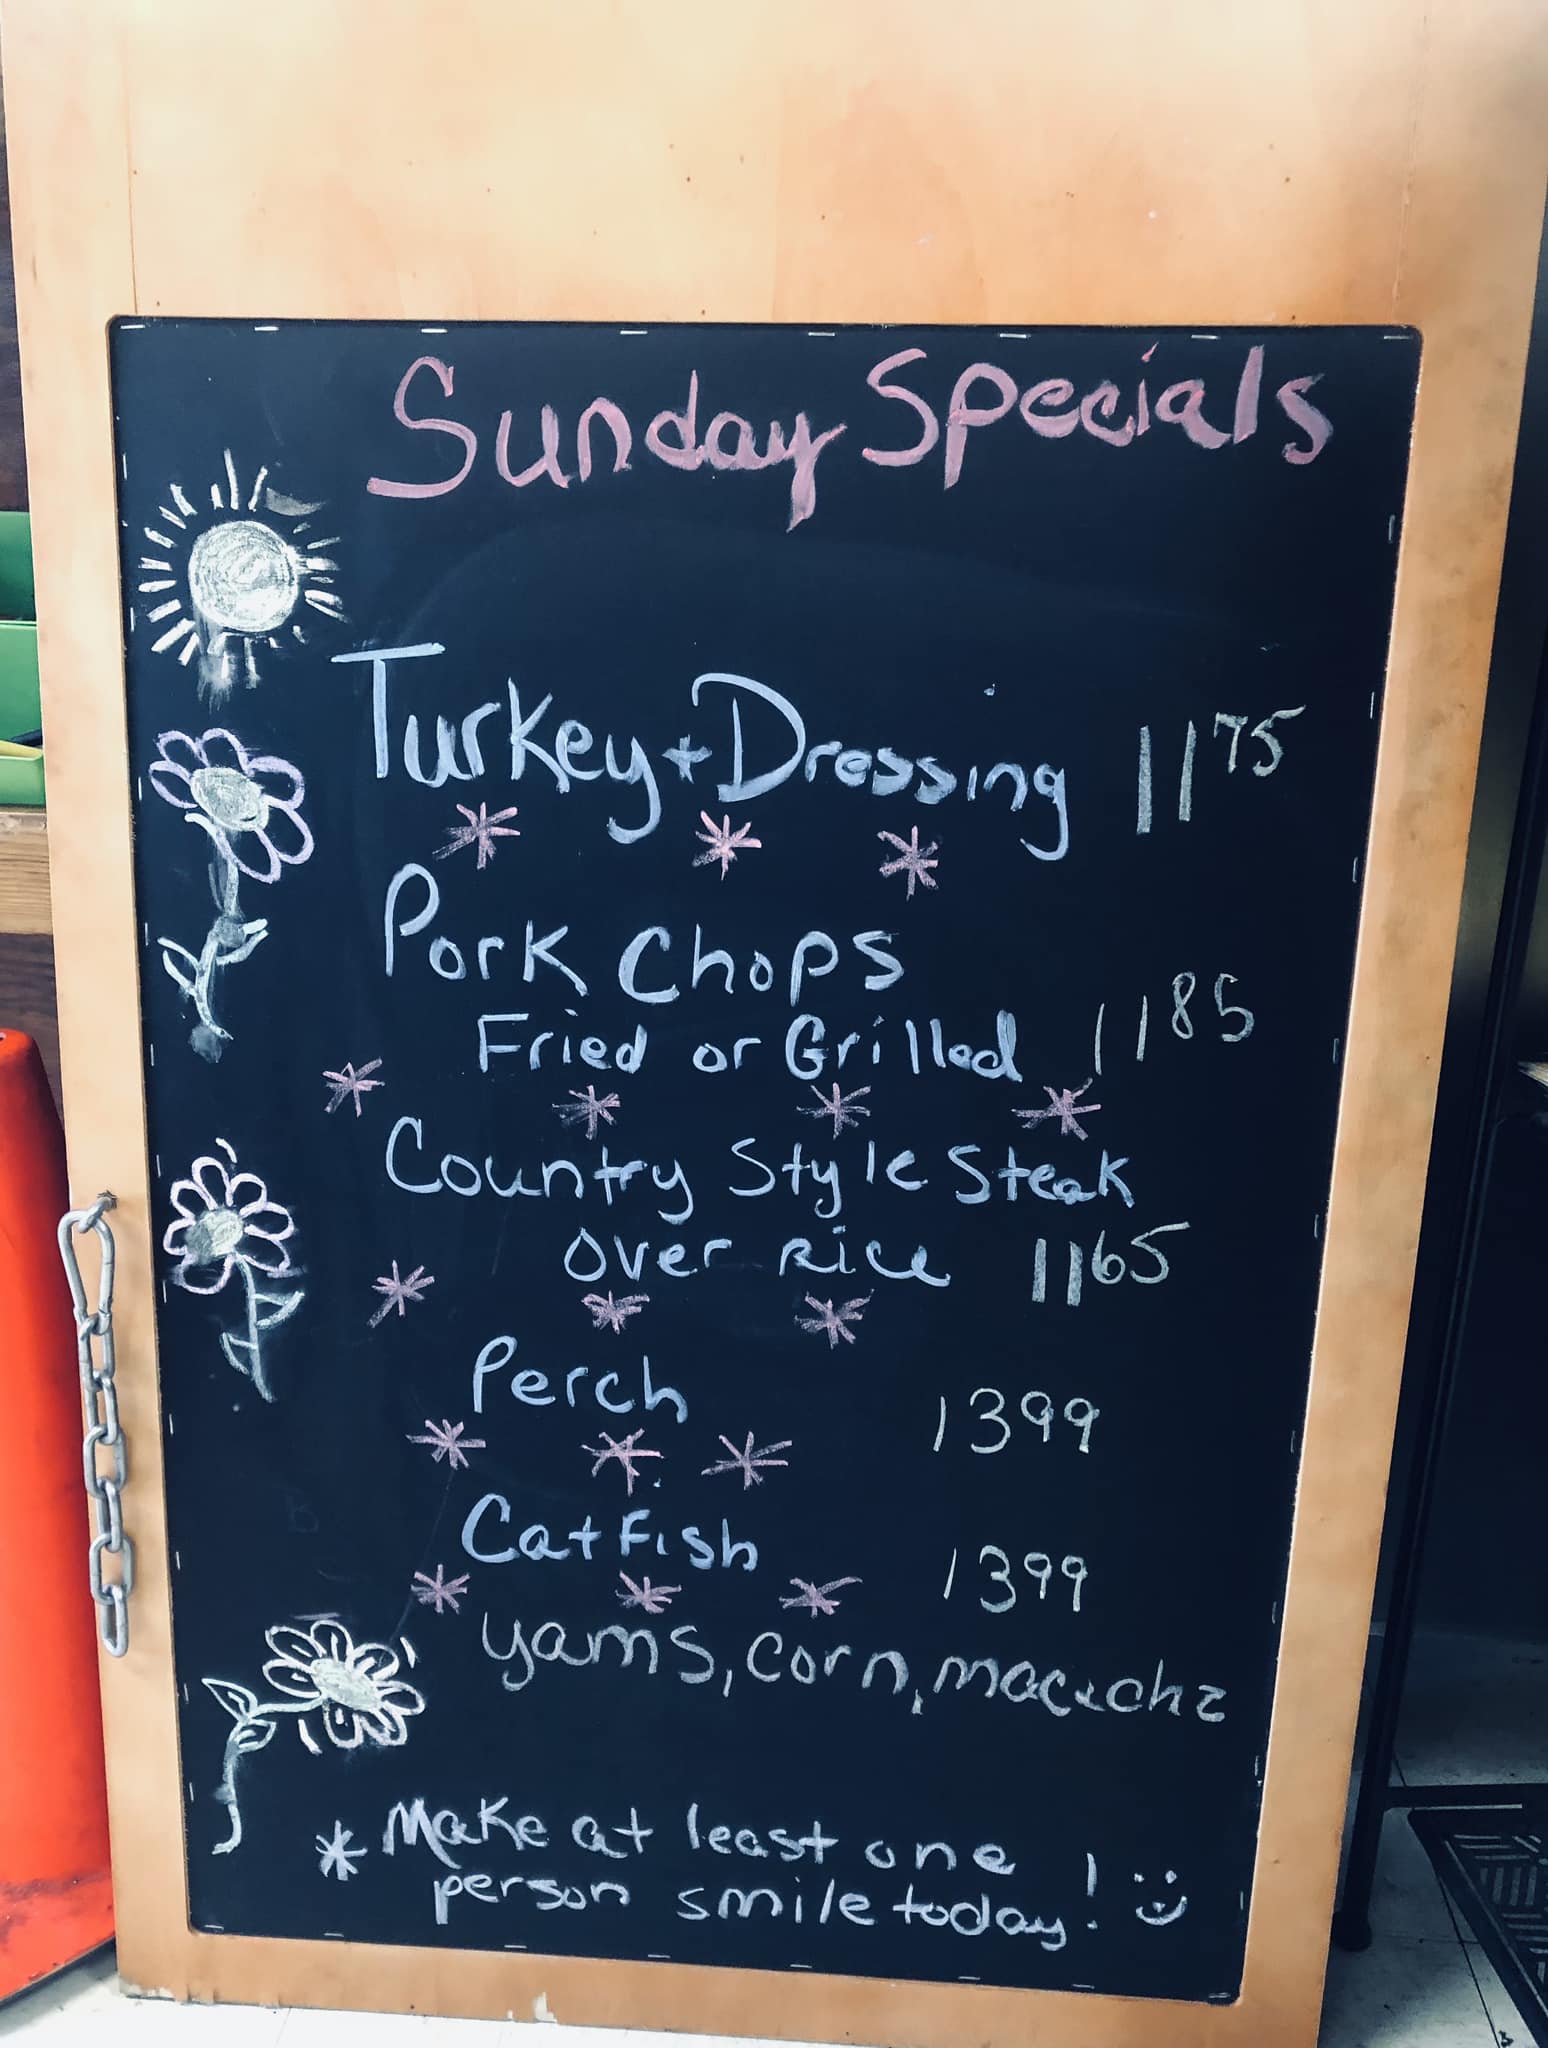 Sunday Specials
Turkey + Dressing 11 75
Pork Chops
Fried or Grilled 11 85
Country Style Steak
Over Rice 11 65
Perch 13 99
Catfish 13 99
yams, corn, mac & chz
* Make at least one
person smile today! :)